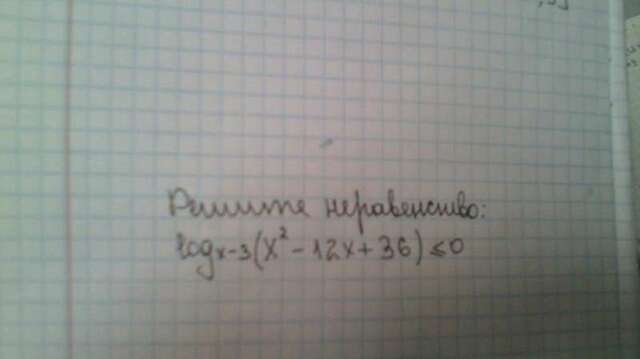 Решите неравенство:
logₓ₋₃(x² - 12x + 36) ≤ 0